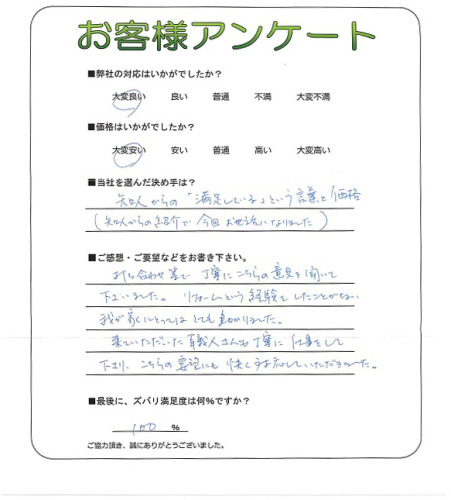 お客様アンケート
■弊社の対応はいかがでしたか？
大変良い 良い 普通 不満 大変不満
■価格はいかがでしたか？
大変安い 安い 普通 高い 大変高い
■当社を選んだ決め手は？
知人からの「満足している」という言葉と価格
（知人からの紹介で今回お世話になりました）
■ご感想・ご要望などをお書き下さい。
打ち合わせ等で丁寧にこちらの意見を聞いて
下さいました。リフォームという経験をしたことがない
我が家にとってはとても助かりました。
来ていただいた職人さんも丁寧に仕事をして
下さり、こちらの要望にも快く対応していただきました。
■最後に、ズバリ満足度は何％ですか？
100 %
ご協力頂き、誠にありがとうございました。